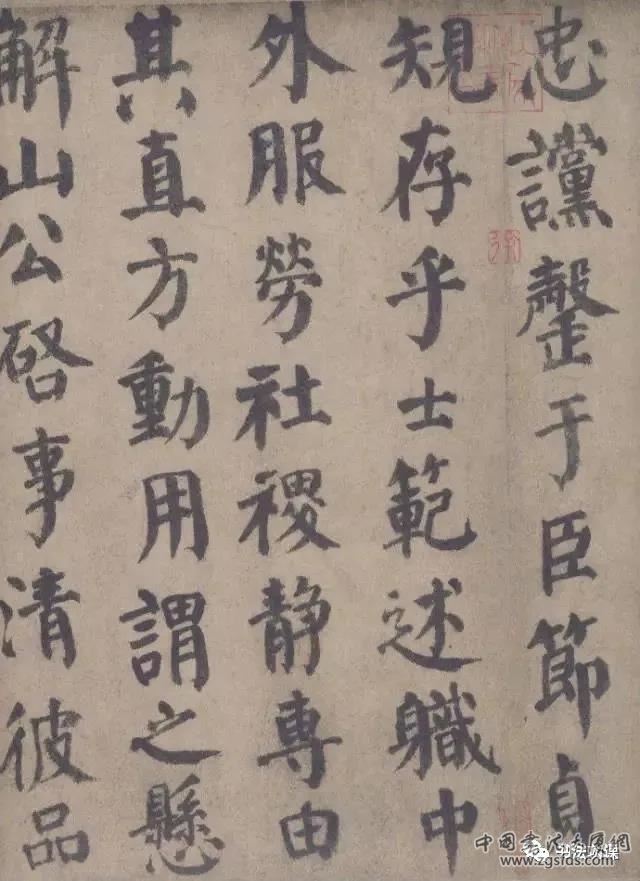 忠讜罄于臣節貞
規存乎士範述職中
外服勞社稷静專由
其直方動用謂之懸
解山公啓事清彼品
中國书法 网
www.zgsfds.com